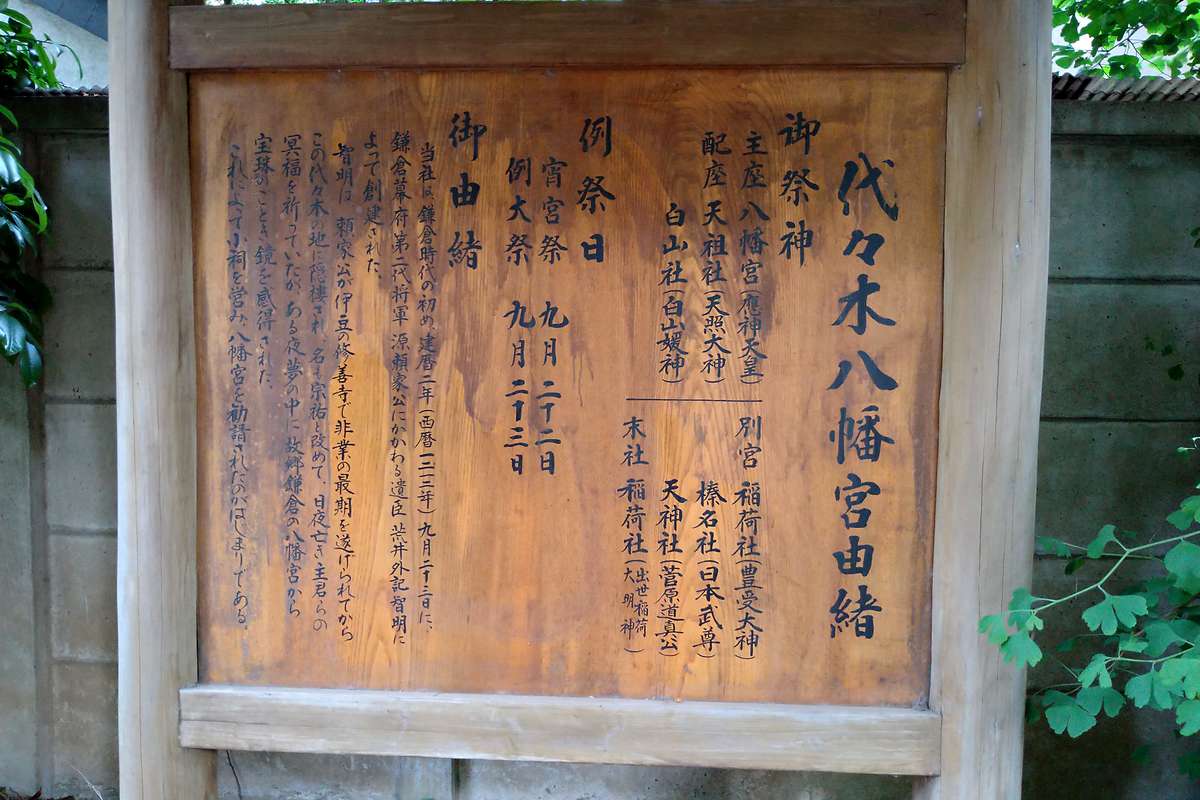 代々木八幡宮由緒
御祭神
主座 八幡宮(應神天皇)
配座 天祖社(天照大神)
白山社(白山媛神)
別宮 稲荷社(豊受大神)
榛名社(日本武尊)
天神社(菅原道真公)
末社 稲荷社(出世稲荷大明神)
例祭日
宵宮祭 九月二十二日
例大祭 九月二十三日
御由緒
当社は鎌倉時代の初め、建暦二年(西暦一二一二年)九月二十三日に、
鎌倉幕府第二代将軍 源頼家公にかかわる遺臣 荒井外記智明に
よって創建された。
智明は 頼家公が伊豆の修善寺で非業の最期を遂げられてから
この代々木の地に隠棲され、名も宗祐と改めて、日夜亡き主君らの
冥福を祈っていたが、ある夜夢の中に故郷鎌倉の八幡宮から
宝珠のごとき鏡を感得された。
これによって小祠を営み、八幡宮を勧請されたのがはじまりである。